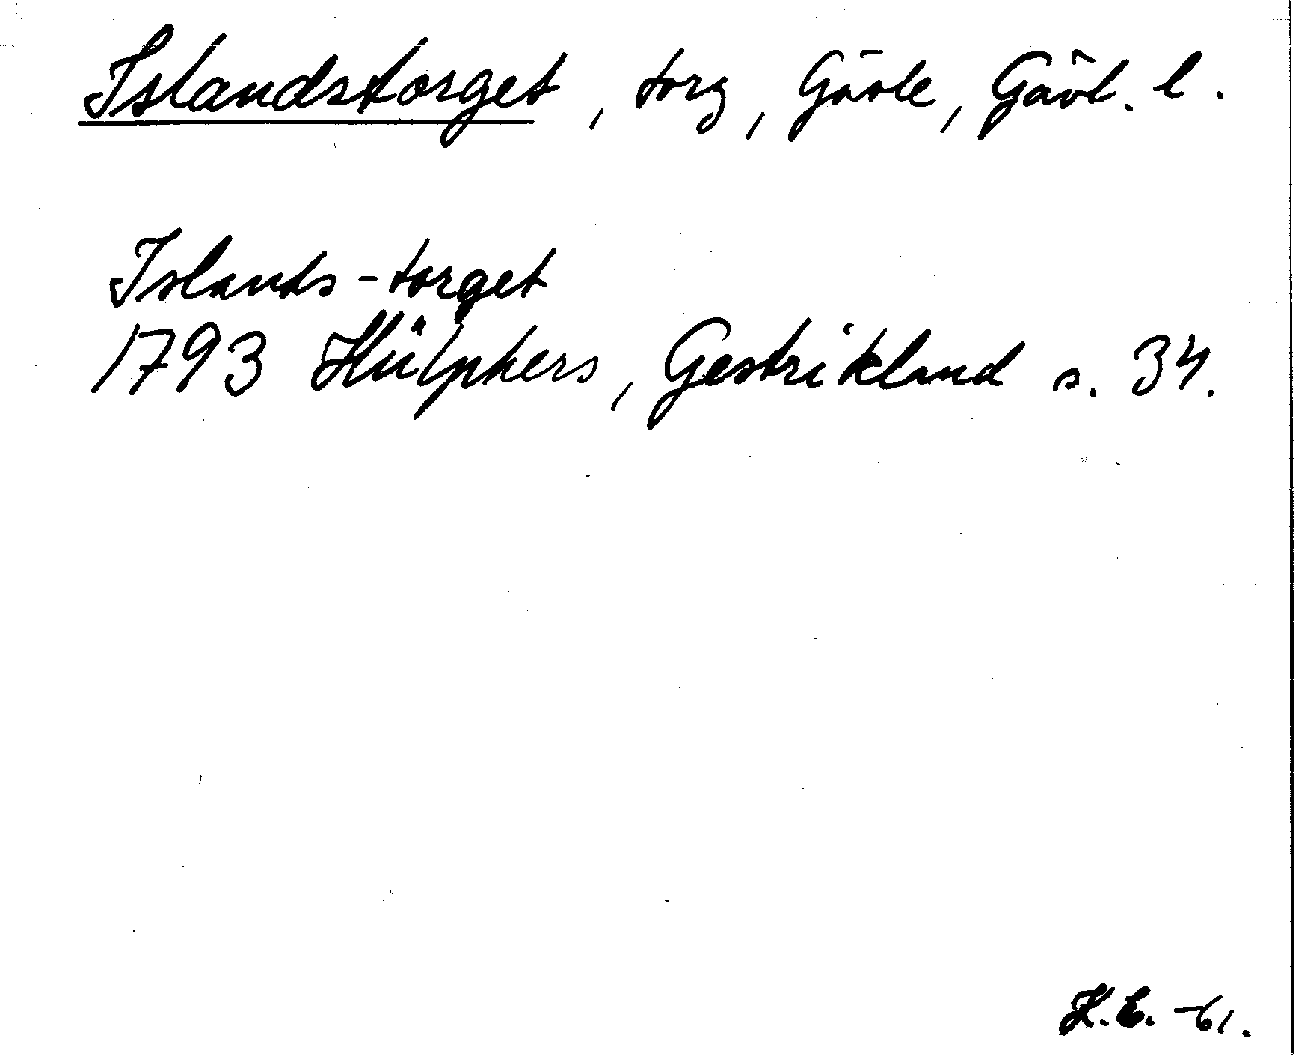 Islandstorget, torg, Gävle, Gävl. l.
Islands-torget
1793 Hülphers, Gestrikland s. 34.
K.E. -61.